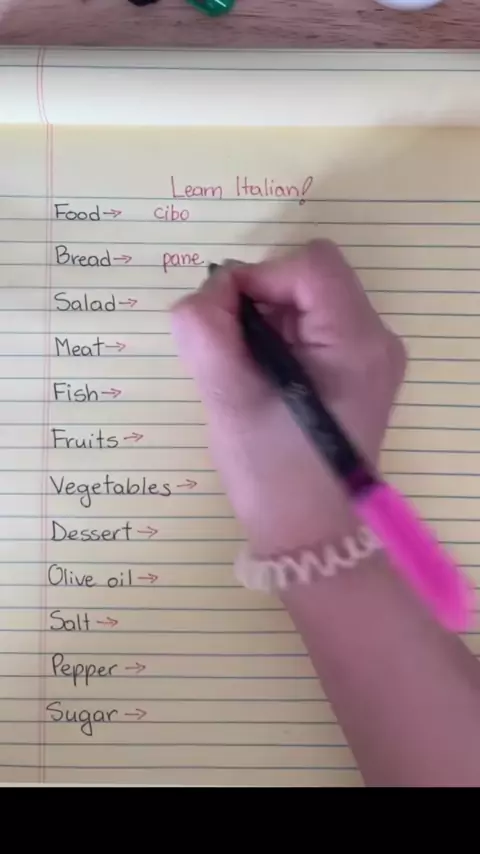 Learn Italian!
Food→ cibo
Bread→ pane
Salad→
Meat→
Fish→
Fruits→
Vegetables→
Dessert→
Olive oil→
Salt→
Pepper→
Sugar→